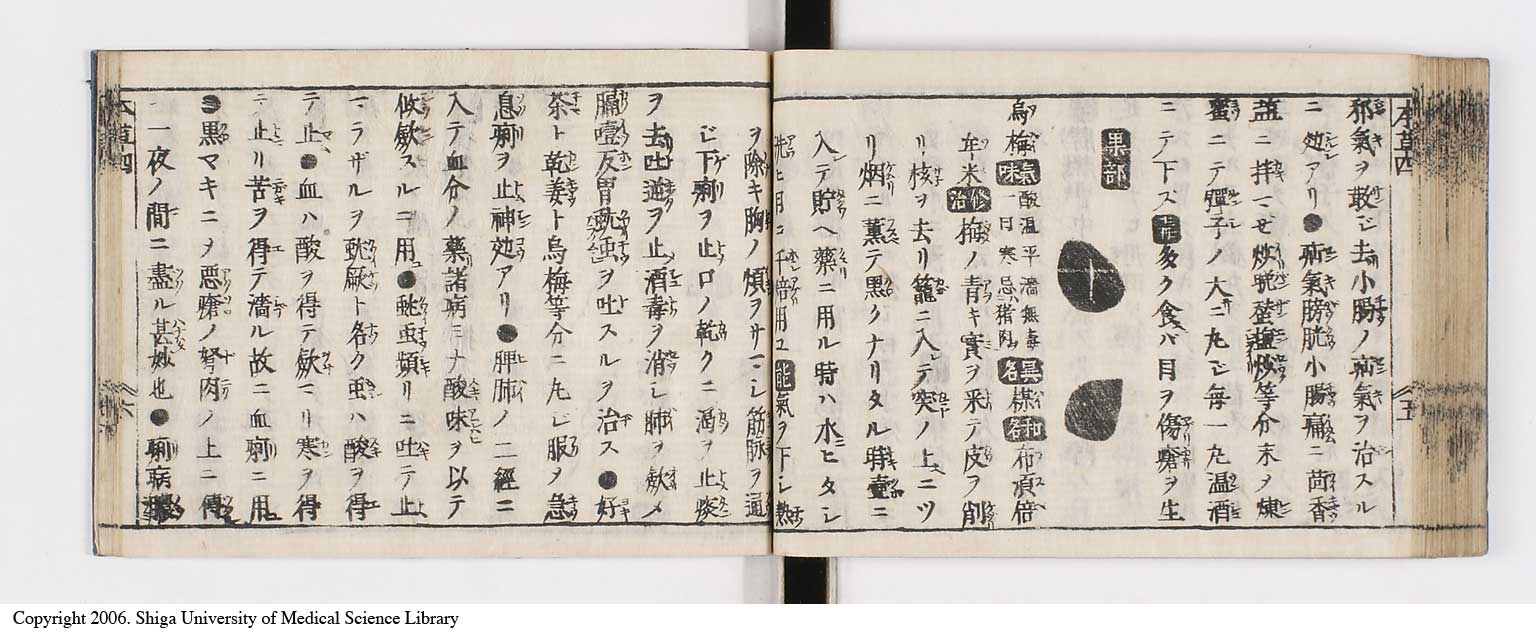 本草四
五
邪氣ヲ散シ去小膓ノ疝氣ヲ治スル
ニ効アリ●疝氣膀胱小膓痛ニ茴香
塩ニ拌マセ炒等分末メ煉
蜜ニテ彈子ノ大ニ丸シ毎一丸温酒
ニテ下ス 多ク食ハ目ヲ傷瘡ヲ生
果部
烏梅 氣味 酸温平濇無毒 一曰寒忌猪肉 異名 楳 和名 布須倍
牟米 修治 梅ノ青キ實ヲ采テ皮ヲ削
リ核ヲ去リ籠ニ入テ突ノ上ニツ
リ烟ニ薫テ黒クナリタル時壷ニ
入テ貯ヘ藥ニ用ル時ハ水ヒタシ
洗ヒ用ユ千倍用ユ 能 氣ヲ下シ熱
ヲ除キ胸ノ煩ヲサマシ筋脉ヲ通
シ下痢ヲ止口ノ乾クニ渇ヲ止痰
ヲ去吐逆ヲ止酒毒ヲ消シ肺ヲ歛メ
膈噎反胃蚘虫ヲ吐スルヲ治ス●好
茶ト乾姜ト烏梅等分ニ丸シ服ヲ急
息痢ヲ止神効アリ●脾肺ノ二經ニ
入テ血分ノ藥諸病ミナ酸味ヲ以テ
收歛スルニ用●蚘虫頻リニ吐テ止
マラザルヲ蚘厥ト名ク虫ハ酸ヲ得
テ止●血ハ酸ヲ得テ歛マリ寒ヲ得
テ止リ苦ヲ得テ濇ル故ニ血痢ニ用
●黒マキニヲ惡瘡ノ努肉ノ上ニ傅
一夜ノ間ニ盡ル甚妙也●痢病
本草四
六
Copyright 2006. Shiga University of Medical Science Library